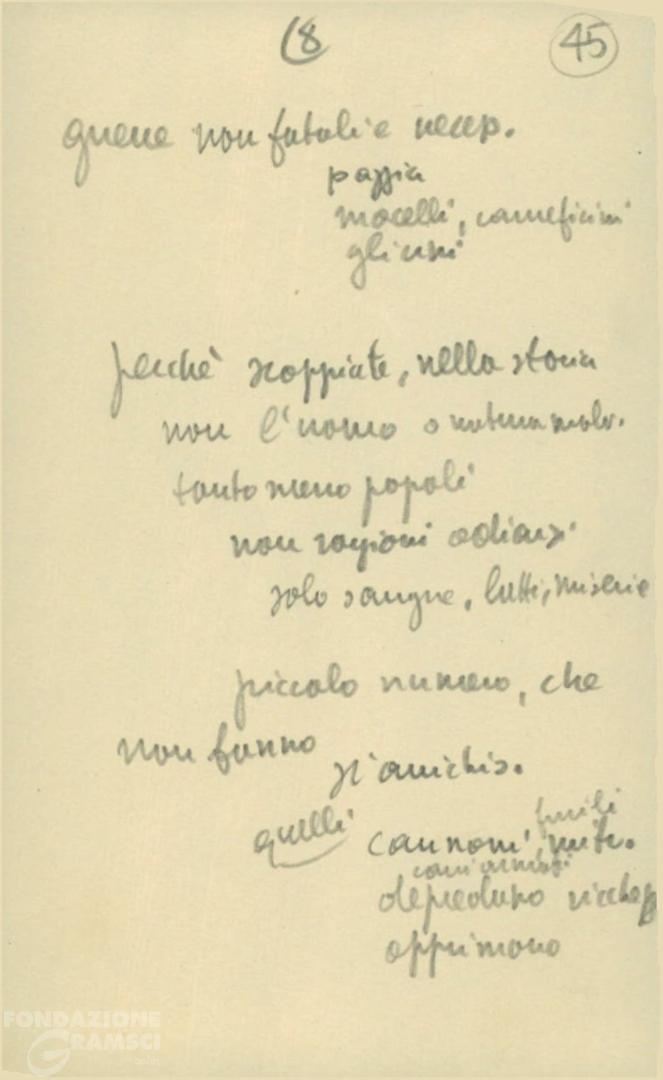 (8 45
guerre non fatali e necess.
pazzia
macelli, carneficine
gli uni
perchè scoppiate, nella storia
non l'uomo o natura malv.
tanto meno popoli
non ragioni odiarsi
solo sangue, lutti, miserie
piccolo numero, che
non fanno
si arricchis.
fucili
quelli cannoni, mitr.
carri armati
depredano ricchezz
opprimono
FONDAZIONE
GRAMSCI